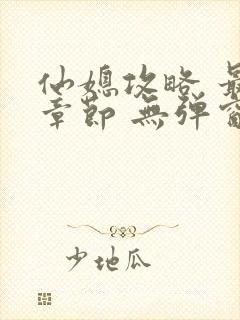 仙媳攻略 最
章節 無弹窗
少地瓜